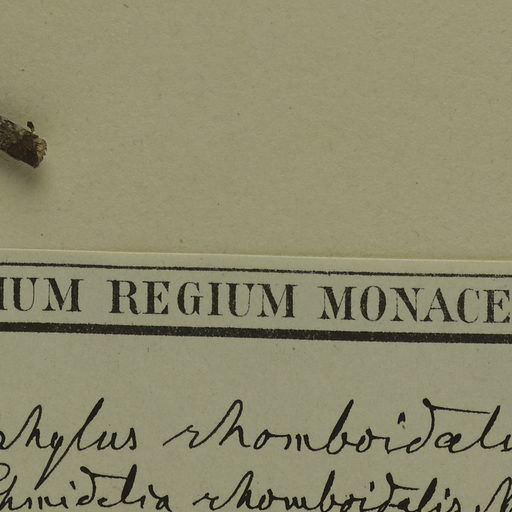 IUM REGIUM MONACE
phylus rhomboidalis
Schmidelia rhomboidalis N